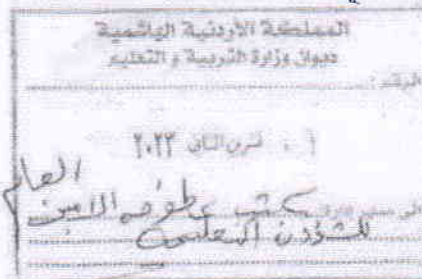 المملكة الأردنية الهاشمية
ديوان وزارة التربية و التعليم
الرقم:
تشرين الثاني ٢٠٢٣
مكتب عطوفه الامين العام
للشؤون التعليمية